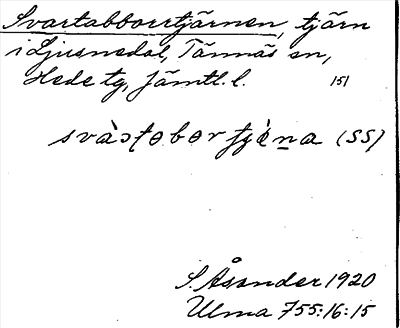 Svartabborrtjärnen, tjärn
i Ljusnedal, Tännäs sn,
Hede tg, Jämtl. l. 151
(SS)
S. Åsander 1920
Ulma 755:16:15